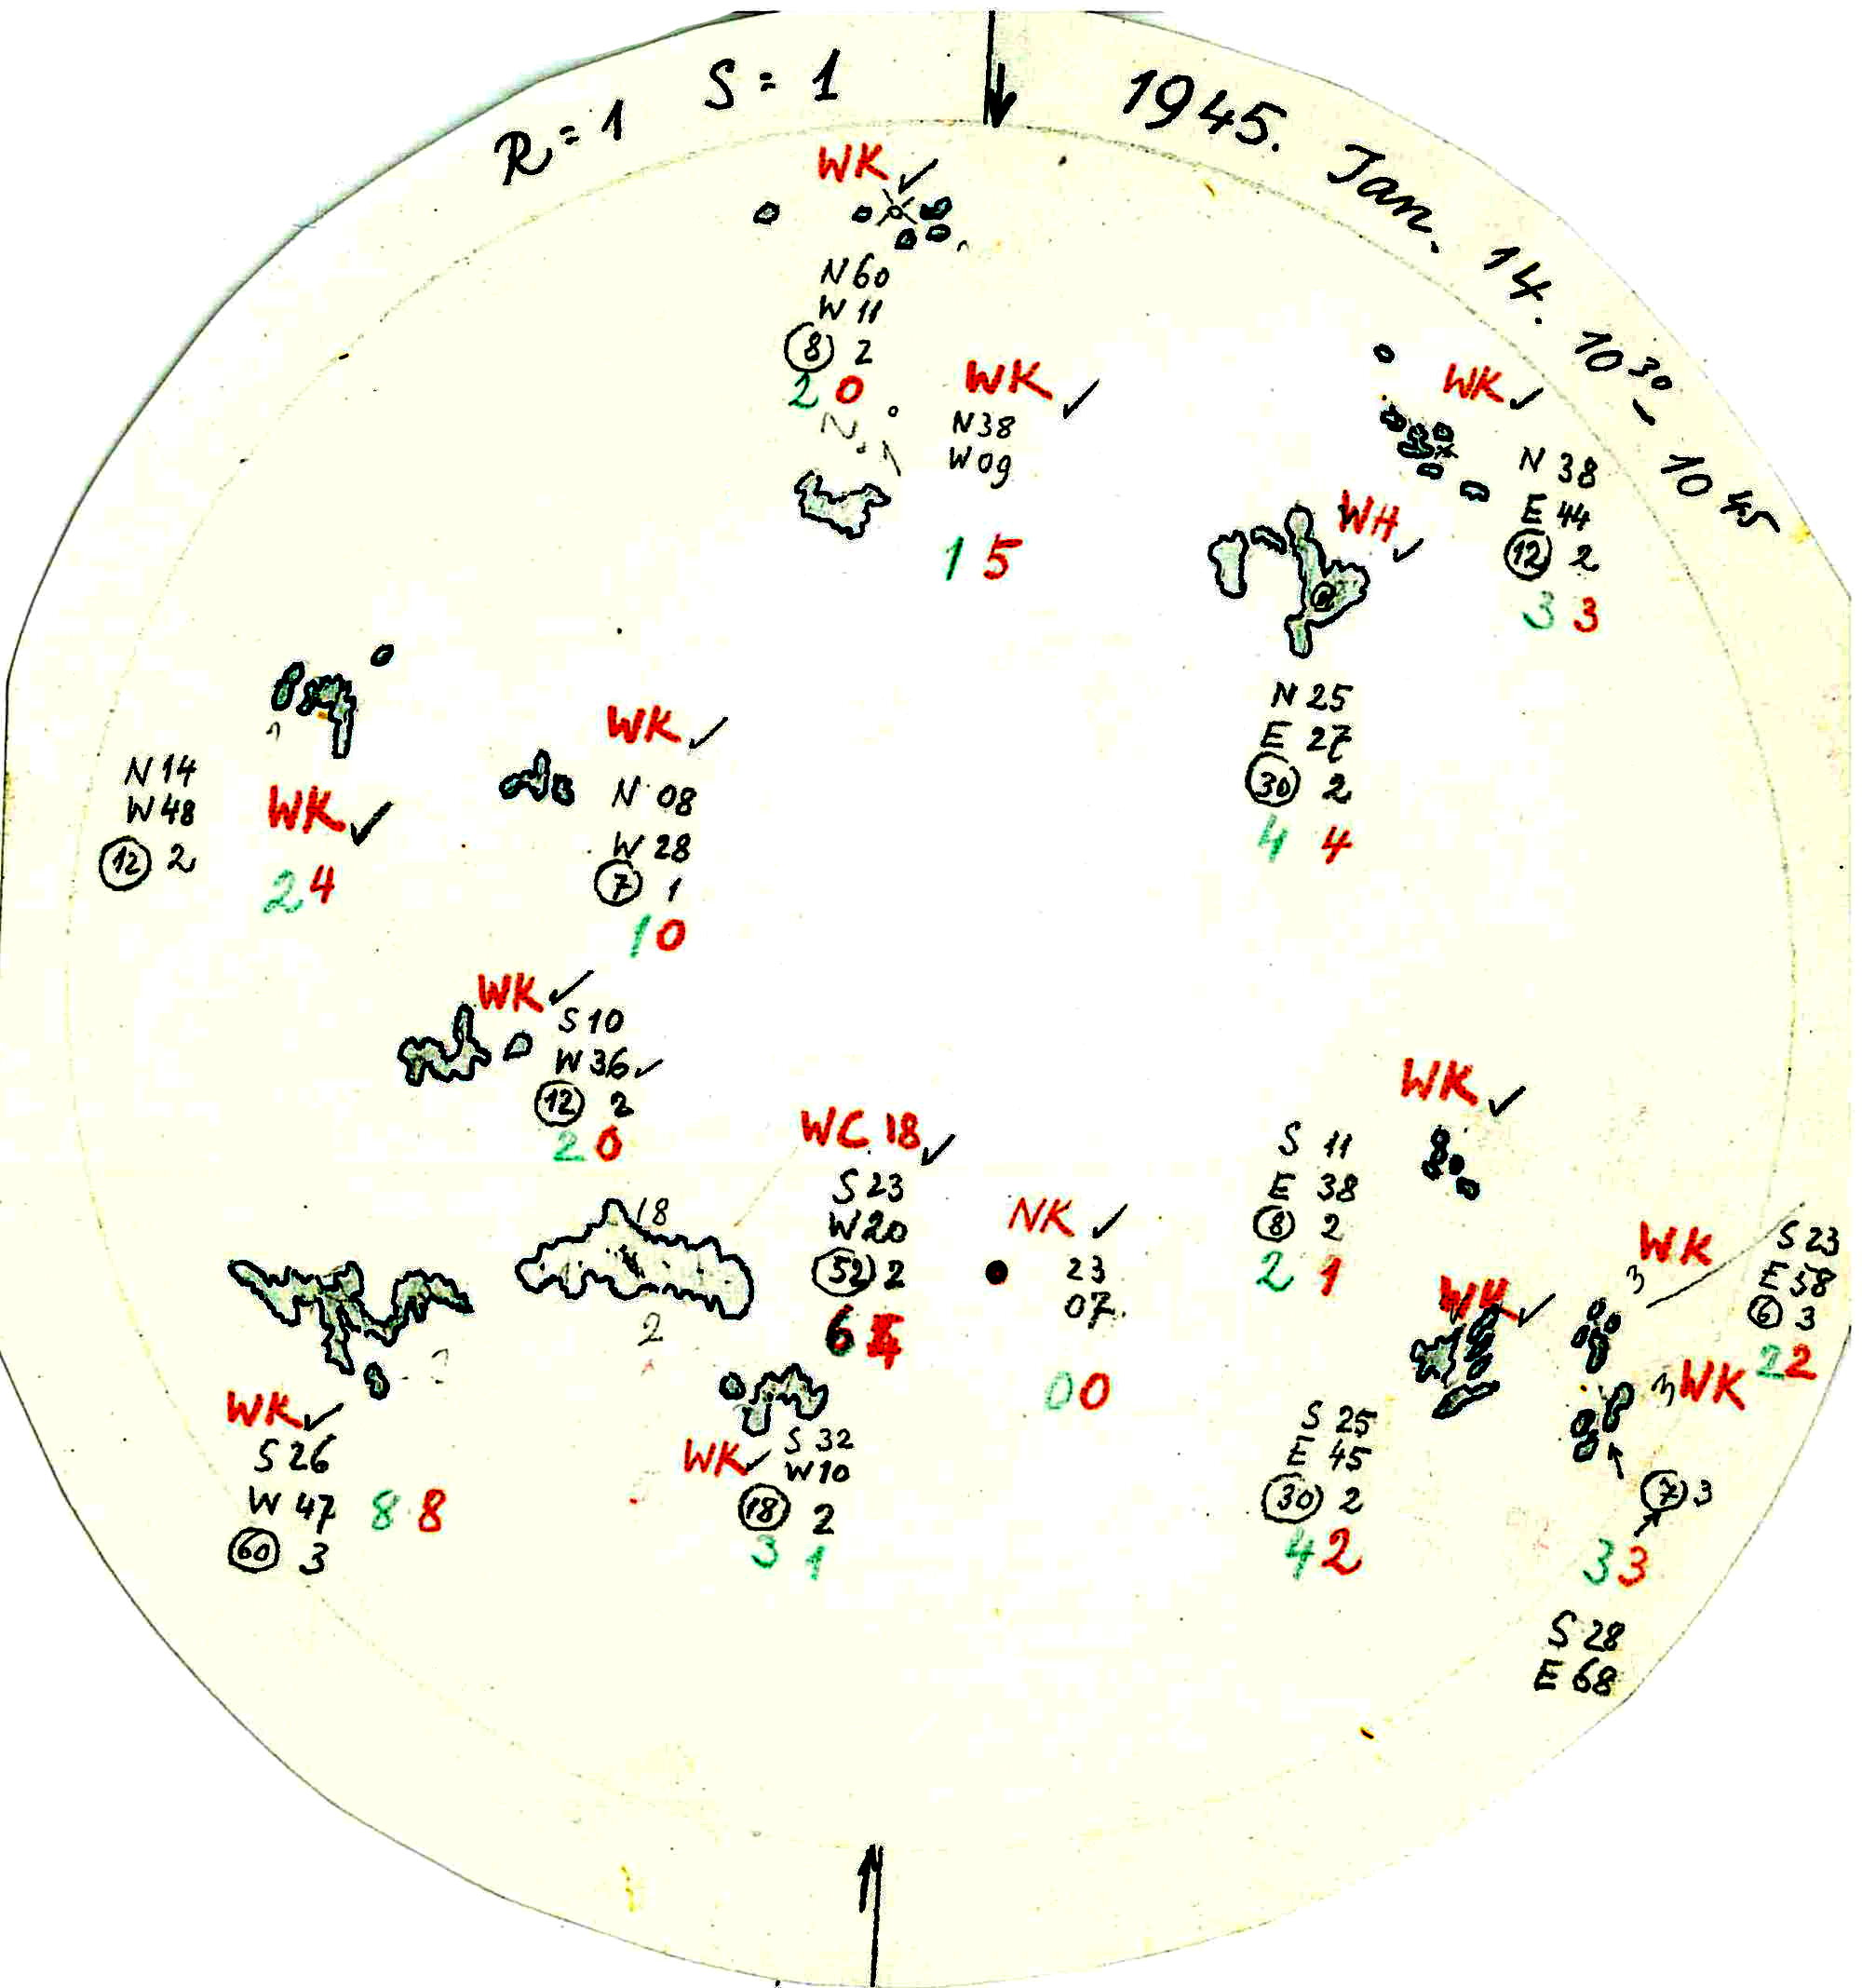 R=1 S=1
1945. Jan. 14. 10³⁰ - 10⁴⁵
WK ✓
N60
W 11
8 2
2 0
WK ✓
N38
W 09
1 5
WK ✓
N 38
E 44
12 2
3 3
WH ✓
N 25
E 27
30 2
4 4
N 14
W 48
12 2
WK ✓
2 4
WK ✓
N 08
W 28
7 1
1 0
WK ✓
S 10
W 36 ✓
12 2
2 0
WC 18 ✓
S 23
W 20
52 2
6
18
2
NK ✓
23
07.
0 0
WK ✓
S 11
E 38
8 2
2 1
WK ✓
S 25
E 45
30 2
4 2
WK
3
S 23
E 58
6 3
2 2
3 WK
7 3
3 3
S 28
E 68
WK ✓
S 26
W 47
60 3
8 8
WK ✓
S 32
W 10
18 2
3 1